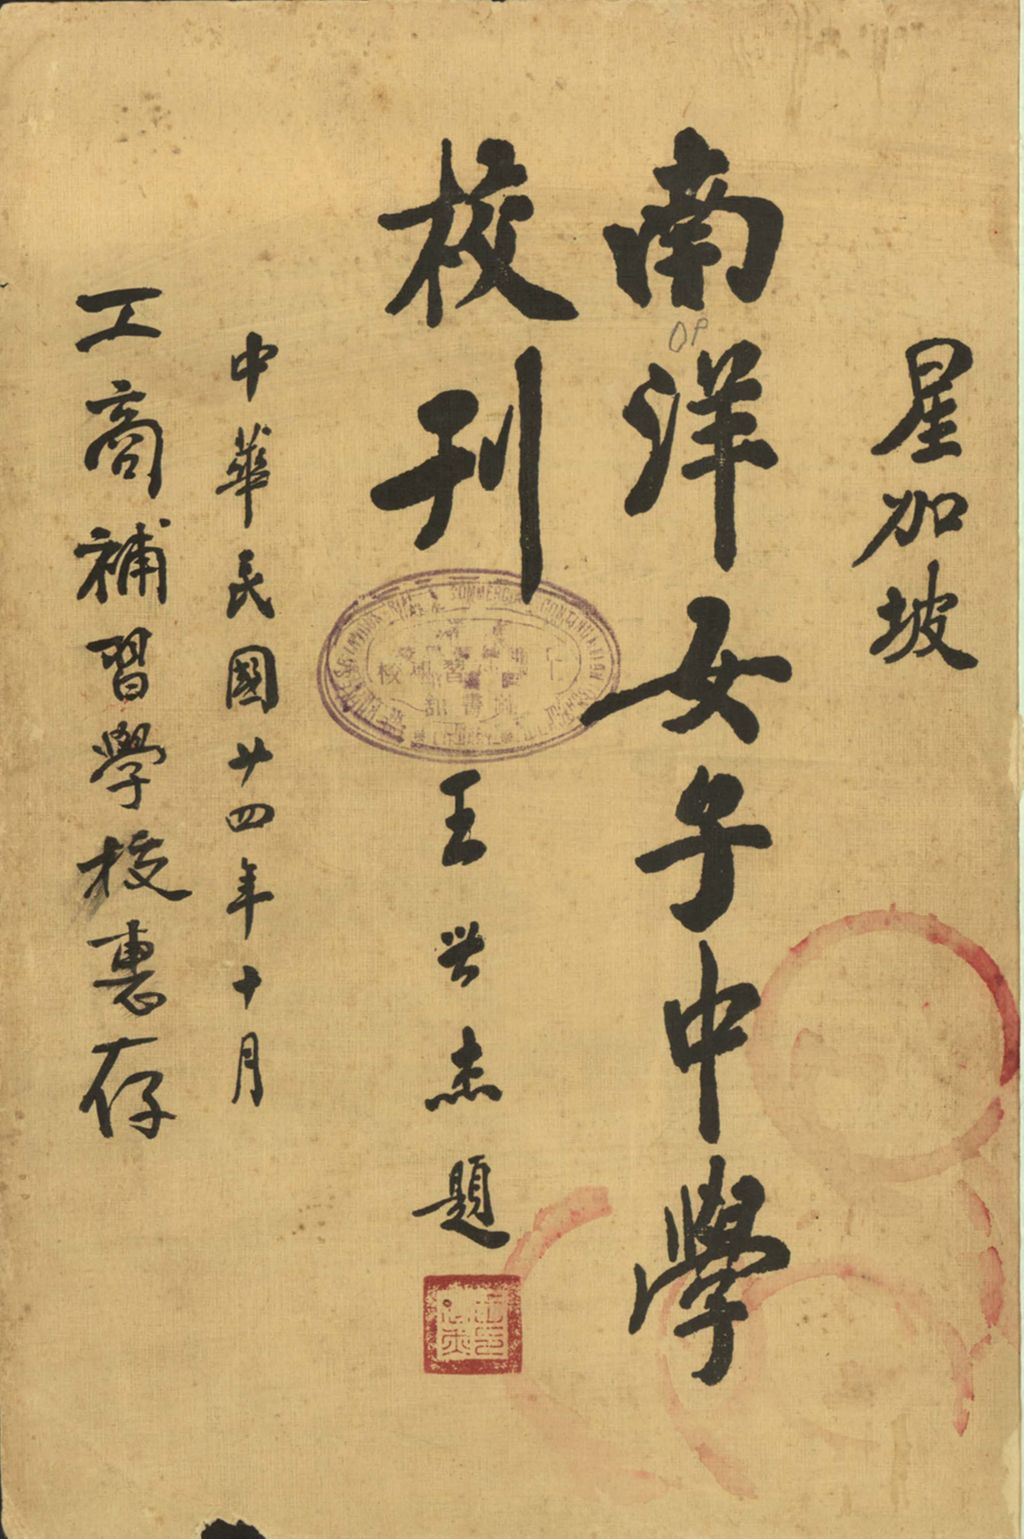 星加坡
南洋女子中學
校刊
王世杰題
中華民國廿四年十月
工商補習學校惠存